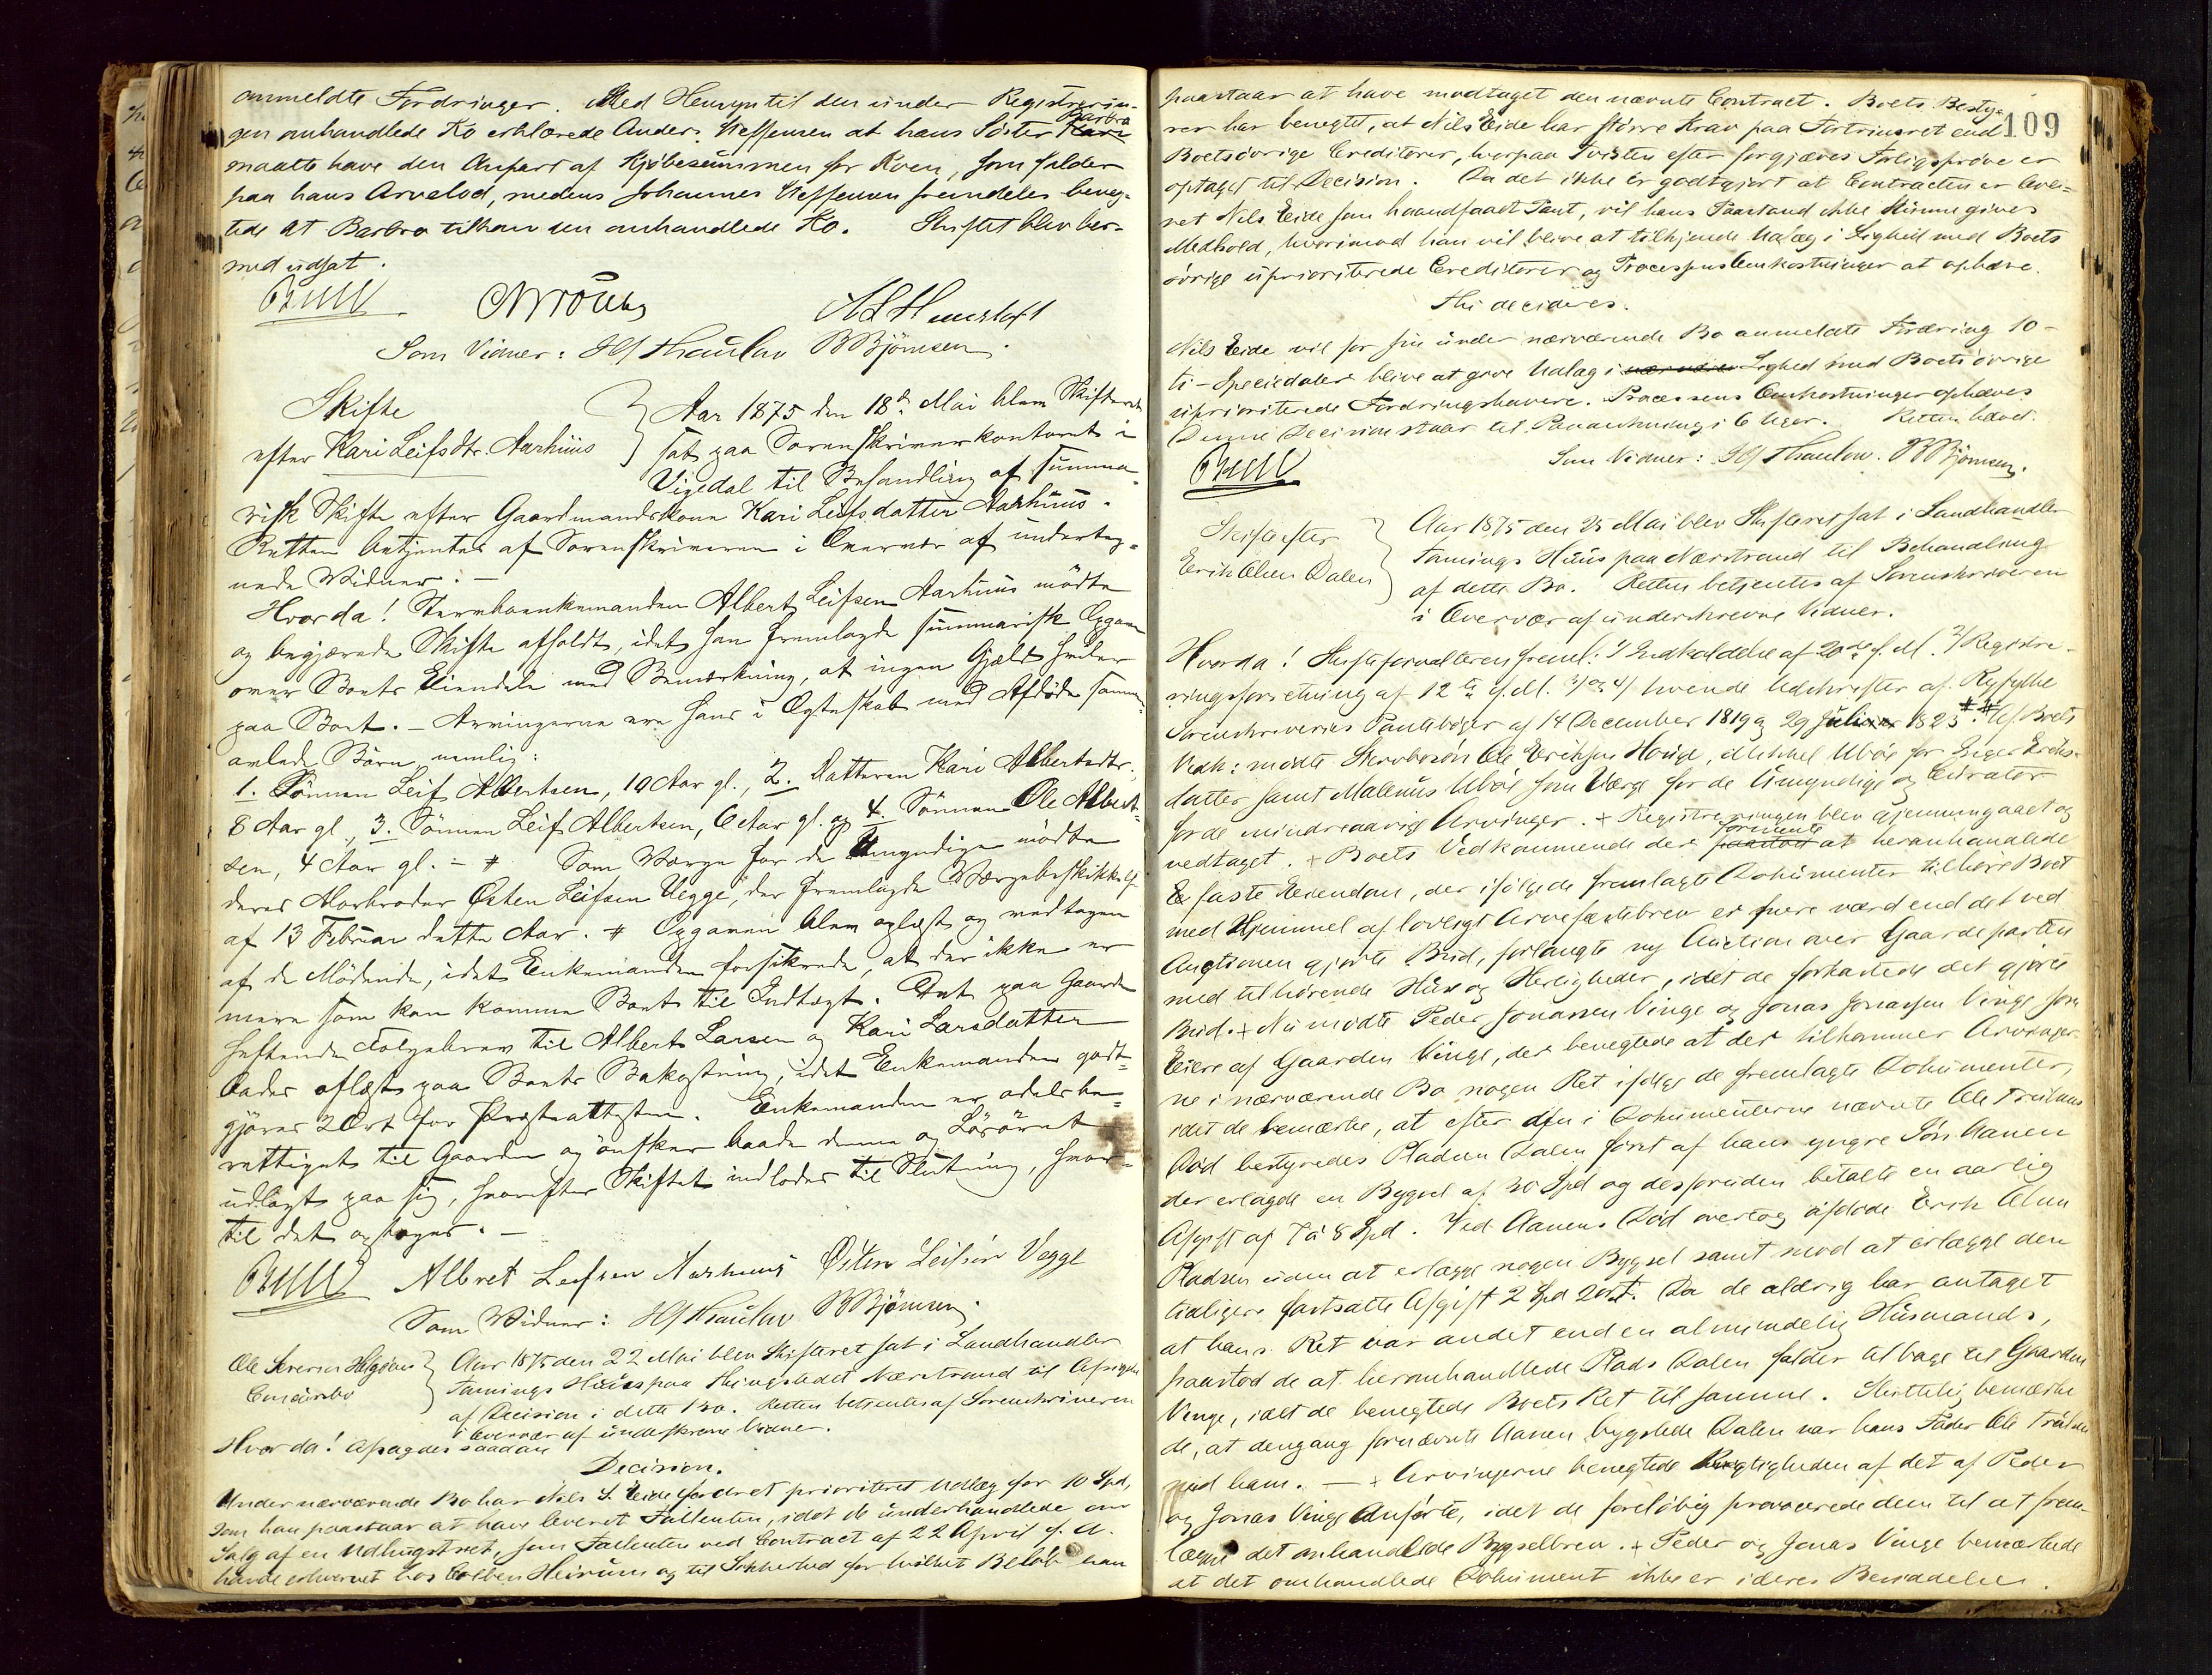 anmeldte Fordringer. Med Hensyn til den under Registrerin-
gen omhandlede Ko erklærede Anders Steffensen at hans Søster Barbra
maatte have den Anpart af Kjøbesummen for Koen, som falder
paa hans Arvelod, medens Johannes Steffensen fremdeles beneg-
tede at Barbra tilkom den omhandlede Ko. Skiftet blev her-
med udsat.
Som Vidner: Thaulow B Bjørnsen.
Skifte
efter Kari Leifsdtr. Aarhuus
Aar 1875 den 18de Mai blev Skifteret
sat paa Sorenskriverkontoret i
Vigedal til Behandling af summa-
risk Skifte efter Gaardmandskone Kari Leifsdatter Aarhuus.
Retten betjentes af Sorenskriveren i Overvær af underteg-
nede Vidner. —
Hvorda! Stervboenkemanden Albert Leifsen Aarhuus mødte
og begjærede Skifte afholdt, idet han fremlagde summarisk Opgave
over Boets Eiendele med Bemærkning, at ingen Gjæld hviler
paa Boet. — Arvingerne ere hans i Ægteskab med Afdøde sammen-
avlede Børn, nemlig:
1. Sønnen Leif Albertsen, 10 Aar gl., 2. Datteren Kari Albertsdtr.,
8 Aar gl., 3. Sønnen Leif Albertsen, 6 Aar gl. og 4. Sønnen Ole Albert-
sen, 4 Aar gl. — # Som Værge for de Umyndige mødte
deres Morbroder Østen Leifsen Vegge, der fremlagde Værgebeskikkelse
af 13 Februar dette Aar. # Opgaven blev oplæst og vedtagen
af de Mødende, idet Enkemanden forsikrede, at der ikke er
mere som kan komme Boet til Indtægt. Det paa Gaarden
heftende Følgebrev til Albert Larsen og Kari Larsdatter
bades aflæst paa Boets Bekostning, idet Enkemanden godt-
gjøres 2 Ort for Præsteattesten. Enkemanden er odelsbe-
rettiget til Gaarden og ønsker baade denne og Løsøret
udlagt paa sig, hvorefter Skiftet indlodes til Slutning, hvor-
til det optages. —
Albret Leifsen Aarhuus Østen Leifsøn Vegge
Som Vidner: Thaulow B Bjørnsen.
Ole Severin Helgøens
Concursbo
Aar 1875 den 22 Mai blev Skifteret sat i Landhandler
Tamings Huus paa Thingstedet Nærstrand til Afsigelse
af Decision i dette Bo. Retten betjentes af Sorenskriveren
i Overvær af underskrevne Vidner.
Hvorda! Afsagdes saadan
Decision.
Under nærværende Bo har Nils S. Eide fordret prioriteret Udlæg for 10 Spd,
som han paastaar at have leveret Fallenten, idet de underhandlede om
Salg af en Udlugstret, som Fallenten ved Contract af 22 April f. A.
havde erhvervet hos Colben Heirum og til Sikkerhed for hvilket Beløb han
109
paastaar at have modtaget den nævnte Contract. Boets Besty-
rer har benegtet, at Nils Eide har større Krav paa Fortrinsret end
Boets øvrige Creditorer, hvorpaa Tvisten efter forgjæves Forligsprøve er
optaget til Decision. Da det ikke er godtgjort at Contracten er leve-
ret Nils Eide som haandfaaet Pant, vil hans Paastand ikke kunne gives
Medhold, hvorimod han vil blive at tilkjende Udlæg i Lighed med Boets
øvrige uprioriterede Creditorer og Processens Omkostninger at ophæve.
Thi decideres.
Nils Eide vil for sin under nærværende Bo anmeldte Fordring 10 —
ti — Speciedaler blive at give Udlæg i Lighed med Boets øvrige
uprioriterede Fordringshavere. Processens Omkostninger ophæves
Denne Decision staar til Paaankning i 6 Uger. Retten hævet.
Som Vidner: Thaulow. B Bjørnsen.
Skifte efter
Erik Olsen Dalen
Aar 1875 den 25 Mai blev Skifteret sat i Landhandler
Tamings Huus paa Nærstrand til Behandling
af dette Bo. Retten betjentes af Sorenskriveren
i Overvær af underskrevne Vidner.
Hvorda! Skifteforvalteren freml: 1/ Indkaldelse af 20de f. M. 2/ Registre-
ringsforretning af 12te f. M. 3/ og 4/ tvende Udskrifter af Ryfylke
Sorenskriveries Pantebøger af 14 December 1819 og 29 Juli 1823 #. # Af Boets
Vedk: mødte Stervbosøn Ole Eriksen Houge, Mikkel Ubøe for Inger Eriks-
datter samt Malenus Ubøe som Værge for de Umyndige og Curator
for de mindreaarige Arvinger. + Registreringen blev gjennemgaaet og
vedtaget. + Boets Vedkommende der formente at heromhandlede
faste Eiendom, der ifølge de fremlagte Dokumenter tilhører Boet
med Hjemmel af lovligt Arvefæstebrev er mere værd end det ved
Auctionen gjorte Bud, forlangte ny Auction over Gaardeparten
med tilhørende Huse og Herligheder, idet de forkastede det gjorte
Bud. + Nu mødte Peder Jonassen Vinge og Jonas Jonassen Vinge som
Eiere af Gaarden Vinge, der benegtede at der tilkommer Arvinger-
ne i nærværende Bo nogen Ret ifølge de fremlagte Dokumenter,
idet de bemærke, at efter den i Dokumenterne nævnte Ole Trulsens
Død bestyredes Pladsen Dalen først af hans yngre Søn Aanen
der erlagde en Bygsel af 30 Spd og desforuden betalte en aarlig
Afgift af 7 à 8 Spd. Ved Aanens Død overtog afdøde Erik Olsen
Pladsen uden at erlægge nogen Bygsel samt mod at erlægge den
tidligere fastsatte Afgift 2 Spd 2 Ort. Da de aldrig har antaget
at hans Ret var andet end en almindelig Husmands,
paastod de at heromhandlede Plads Dalen falder tilbage til Gaarden
Vinge, idet de benegtede Boets Ret til samme. Skriftelig bemærke
de, at dengang fornævnte Aanen bygslede Dalen var hans Fader Ole Trulsen
med ham. — + Arvingerne benegtede Rigtigheden af det af Peder
og Jonas Vinge Anførte, idet de foreløbig provocerede dem til at frem-
lægge det omhandlede Bygselbrev. + Peder og Jonas Vinge bemærkede
at det omhandlede Dokument ikke er i deres Besiddelse.